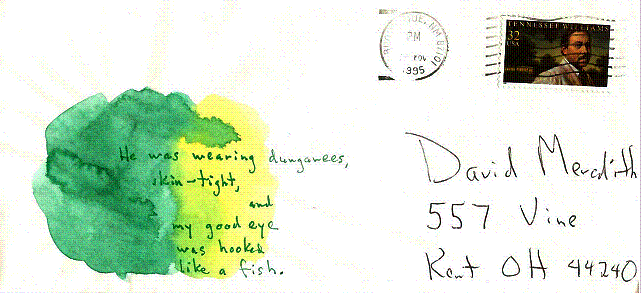 NM
PM
NOV
1995
TENNESSEE WILLIAMS
32
USA
He was wearing dungarees,
skin-tight,
and
my good eye
was hooked
like a fish.
David Meredith
557 Vine
Kent OH 44240